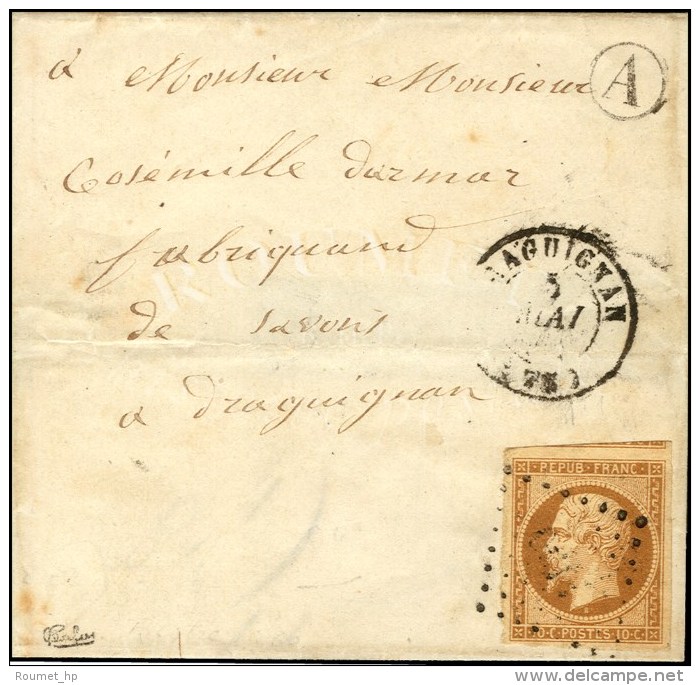 à Monsieur Monsieur
A
Cosémille darmar
fabriquand
de savons
à draguignan
RAGUIGNAN
5
MAI
REPUB·FRANC·
10·C·POSTES·10·C·
Roumet_hp
delcampe.net